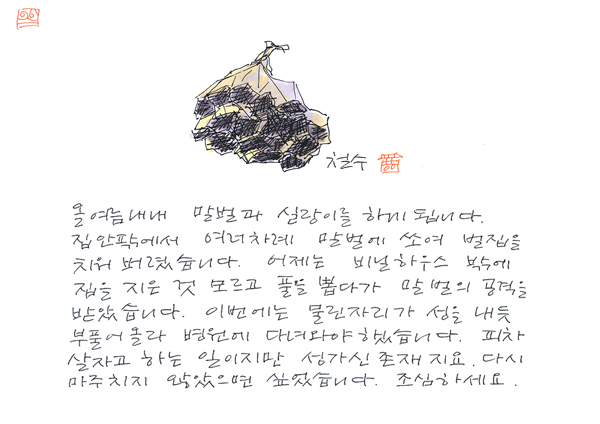 철수
올여름내내 말벌과 실랑이를 하게 됩니다.
집안팎에서 여러차례 말벌에 쏘여 벌집을
치워 버렸습니다. 어제는 비닐하우스 밖에
집을 지은 것 모르고 풀을 뽑다가 말벌의 공격을
받았습니다. 이번에는 물린자리가 성을 내듯
부풀어올라 병원에 다녀와야 했습니다. 피차
살자고 하는 일이지만 성가신 존재지요. 다시
마주치지 않았으면 싶었습니다. 조심하세요.